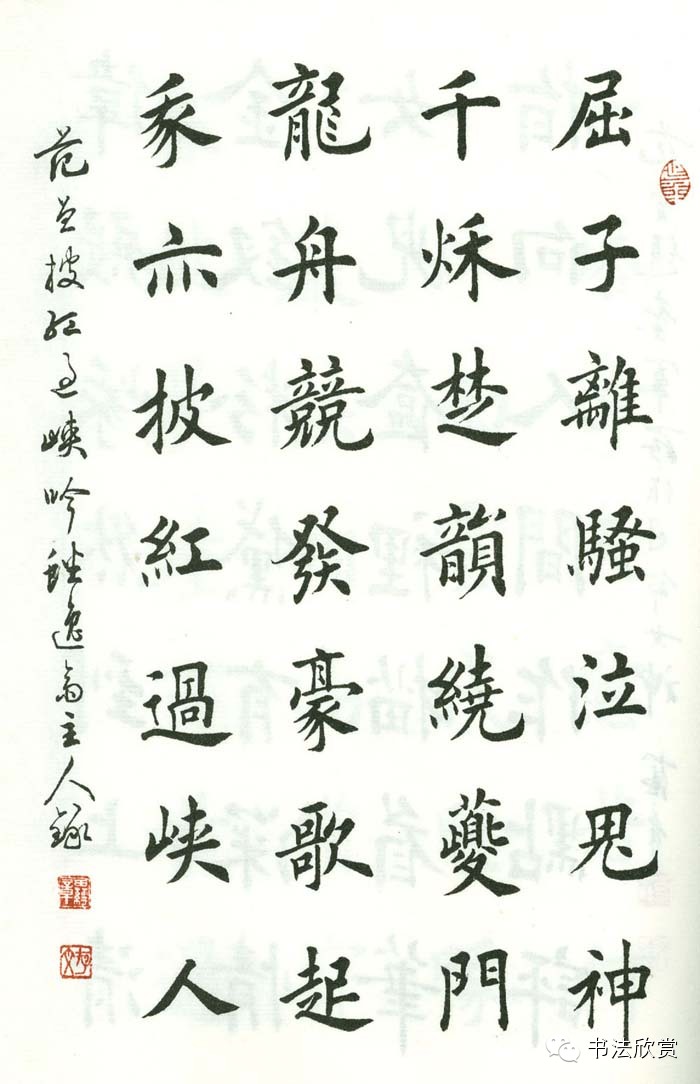 屈子離騷泣鬼神
千秌楚韻繞夔門
龍舟競發豪歌起
我亦披紅過峽人
范公披紅過峽吟 逸翁主人錄
书法欣赏